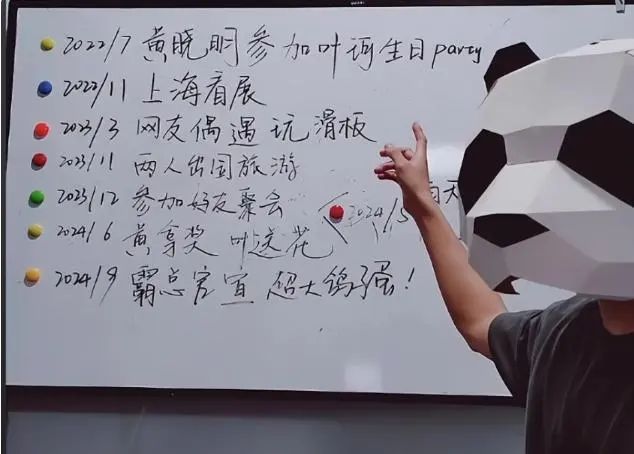 2022/7 黄晓明参加叶珂生日party
2022/11 上海看展
2023/3 网友偶遇玩滑板
2023/11 两人出国旅游
2023/12 参加好友聚会
2024/5 白天
2024/6 黄拿奖 叶送花
2024/9 霸总官宣 超大鸽子蛋！